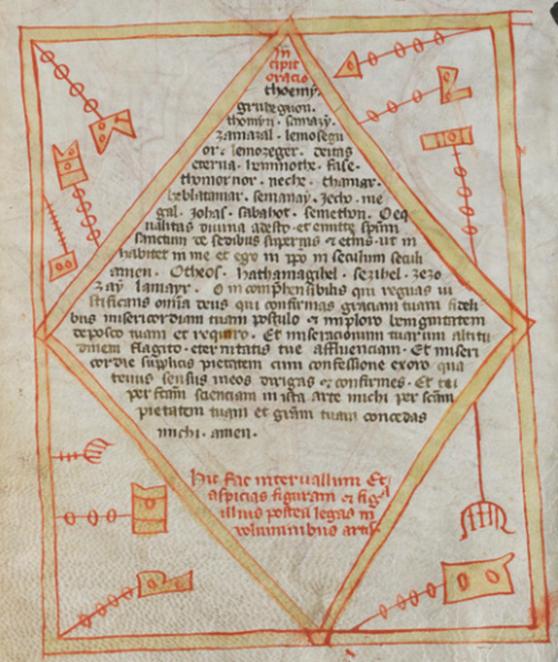 In
cipit
oracio
thoemy.
grudeguon.
thomyn. samazy.
zamazal. lemosegu
or. lemozeger. deitas
eterna. hymnothe. fase.
thomornor. neche. thamar.
semanay. zecho. me
gal. Johas. sabahot. semethon. Oeq
ualitas diuina adesto et emitte spm
sanctum de sedibus supernis ut in
habitet in me et ego in ipo in seculum seculi
amen. Otheos. hathamagihel. sezihel. zezo
zay lamayr. O incomphensibilis qui regnas ui
stificans omnia deus qui confirmas graciam tuam fideli
bus misericordiam tuam postulo et imploro benignitatem
deposco tuam et requiro. Et miseracionum tuarum altitu
dinem flagito. eternitatis tue affluenciam. Et miseri
cordie supplicis pietatem cum confessione exoro qua
tenus sensus meos dirigas et confirmes. Et tui
per scam scienciam in ista arte michi per scam
pietatem tuam et gram tuam concedas
michi. amen.
Hic fac interuallum Et
aspicias figuram et sig
illius postea legas in
voluminibus artis